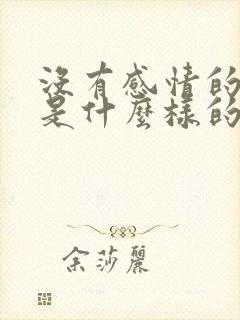 沒有感情的
是什麼樣的
余莎麗